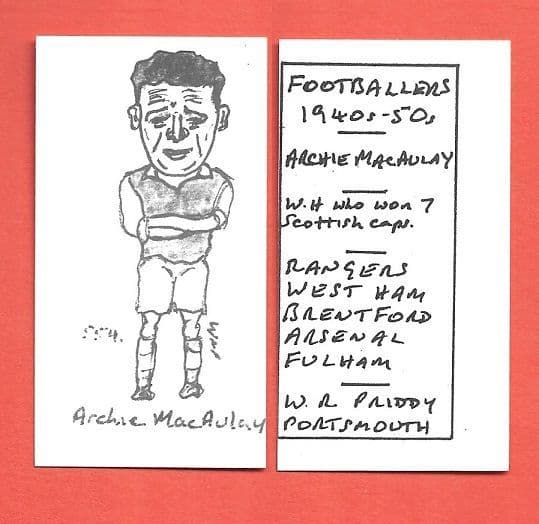 554.
Archie MacAulay
FOOTBALLERS
1940s-50s
ARCHIE MACAULAY
W.H who won 7
Scottish caps.
RANGERS
WEST HAM
BRENTFORD
ARSENAL
FULHAM
W. R PRIDDY
PORTSMOUTH